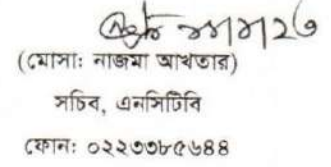 (মোসা: নাজমা আখতার)
সচিব, এনসিটিবি
ফোন: ০২২৩৩৮৫৬৪৪